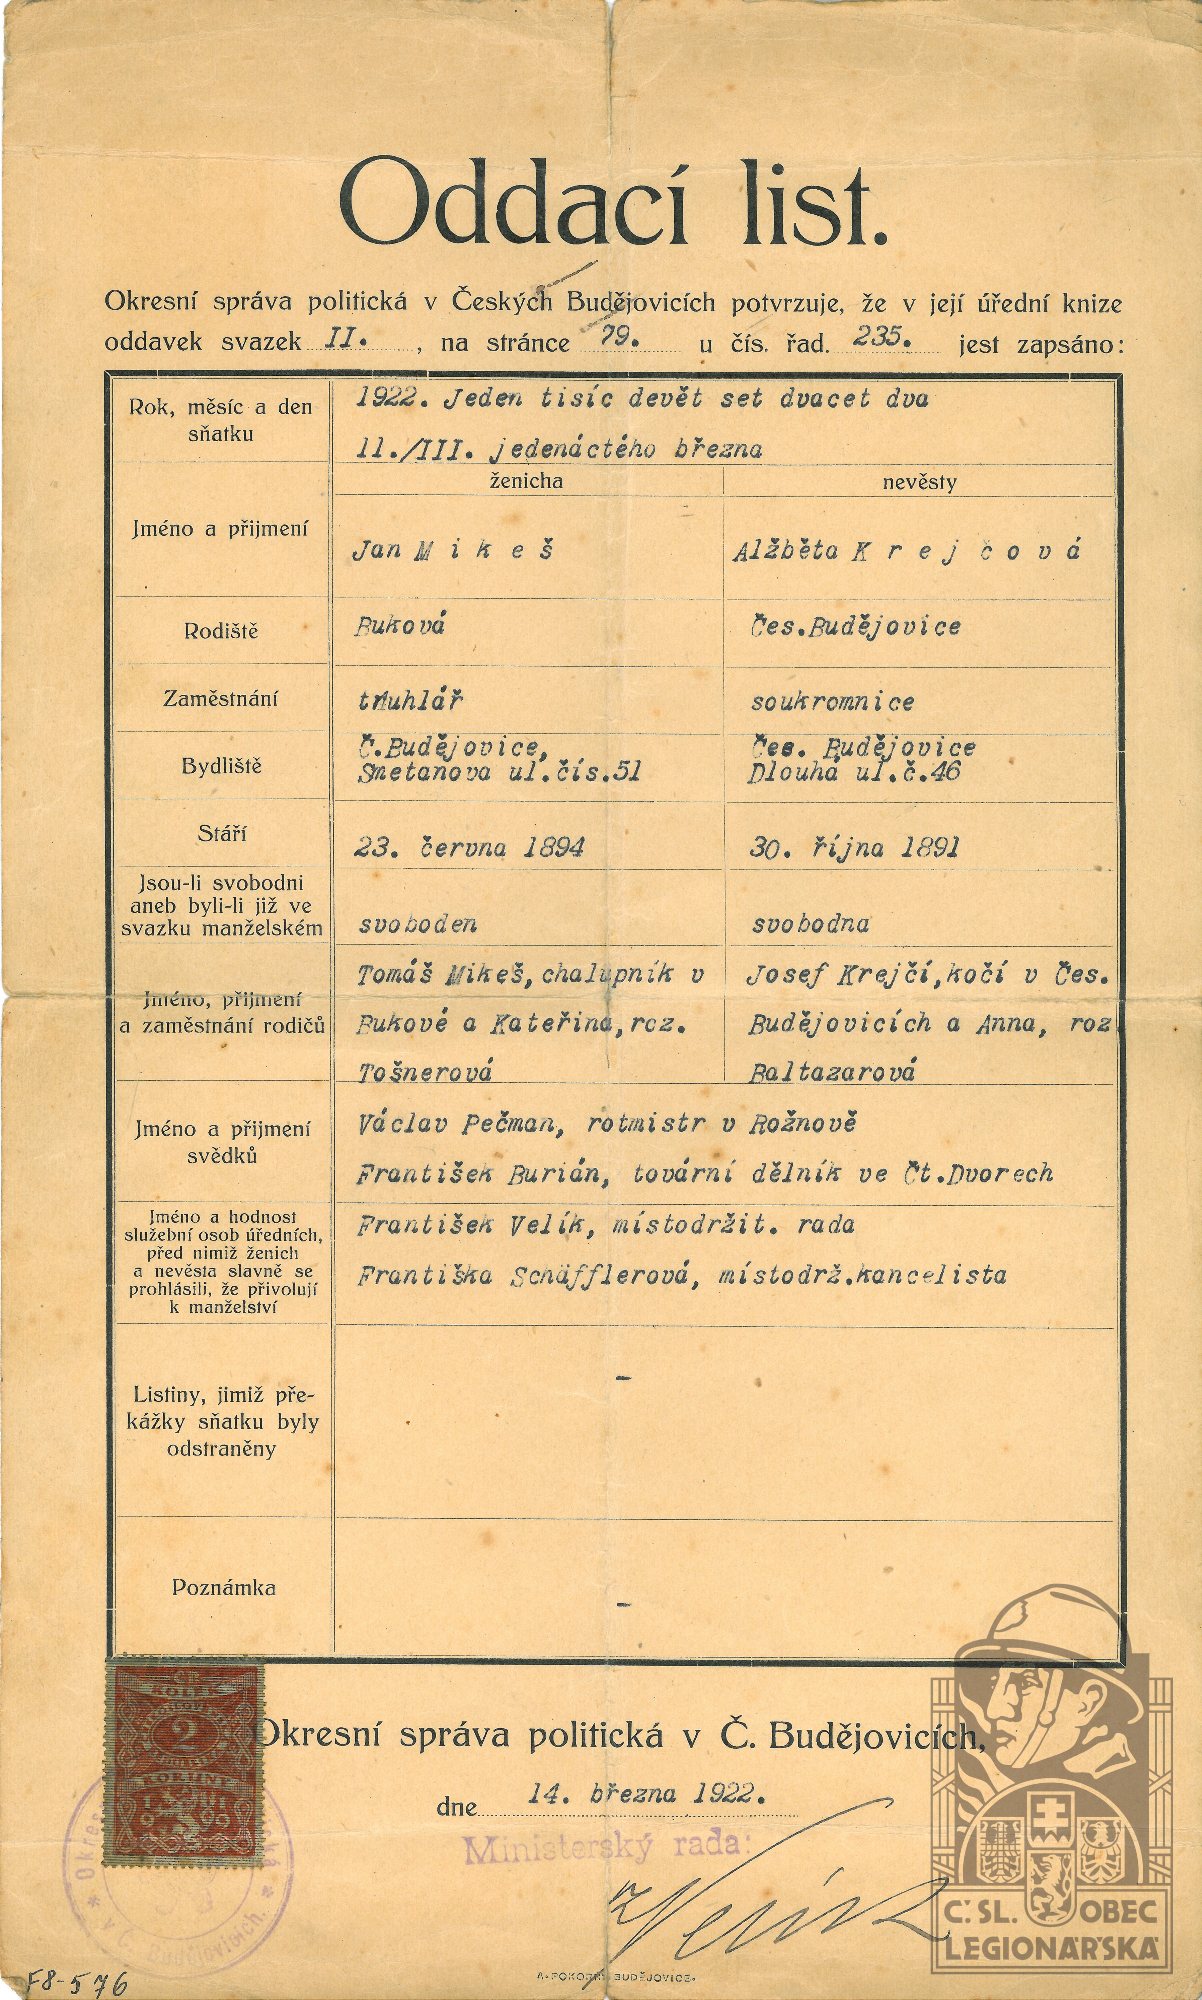 Oddací list.
Okresní správa politická v Českých Budějovicích potvrzuje, že v její úřední knize
oddavek svazek II. , na stránce 79. u čís. řad. 235. jest zapsáno:
Rok, měsíc a den
sňatku
1922. Jeden tisíc devět set dvacet dva
11./III. jedenáctého března
ženicha nevěsty
Jméno a přijmení
Jan M i k e š
Alžběta K r e j č o v á
Rodiště
Buková
Čes.Budějovice
Zaměstnání
truhlář
soukromnice
Bydliště
Č.Budějovice,
Smetanova ul.čís.51
Čes. Budějovice
Dlouhá ul.č.46
Stáří
23. června 1894
30. října 1891
Jsou-li svobodni
aneb byli-li již ve
svazku manželském
svoboden
svobodna
Jméno, přijmení
a zaměstnání rodičů
Tomáš Mikeš, chalupník v
Bukové a Kateřina, roz.
Tošnerová
Josef Krejčí,kočí v Čes.
Budějovicích a Anna, roz
Baltazarová
Jméno a přijmení
svědků
Václav Pečman, rotmistr v Rožnově
František Burián, tovární dělník ve Čt.Dvorech
Jméno a hodnost
služební osob úředních,
před nimiž ženich
a nevěsta slavně se
prohlásili, že přivolují
k manželství
František Velík, místodržit. rada
Františka Schäfflerová, místodrž.kancelista
Listiny, jimiž pře-
kážky sňatku byly
odstraněny
-
Poznámka
-
Okresní správa politická v Č. Budějovicích,
dne 14. března 1922.
Ministerský rada:
Velík
KOLEK
2
KORUNY
1919
* Okres
* v Č. Budějovicích.
Č. SL. OBEC
LEGIONÁŘSKÁ
A. POKORNÝ BUDĚJOVICE.
F8-576